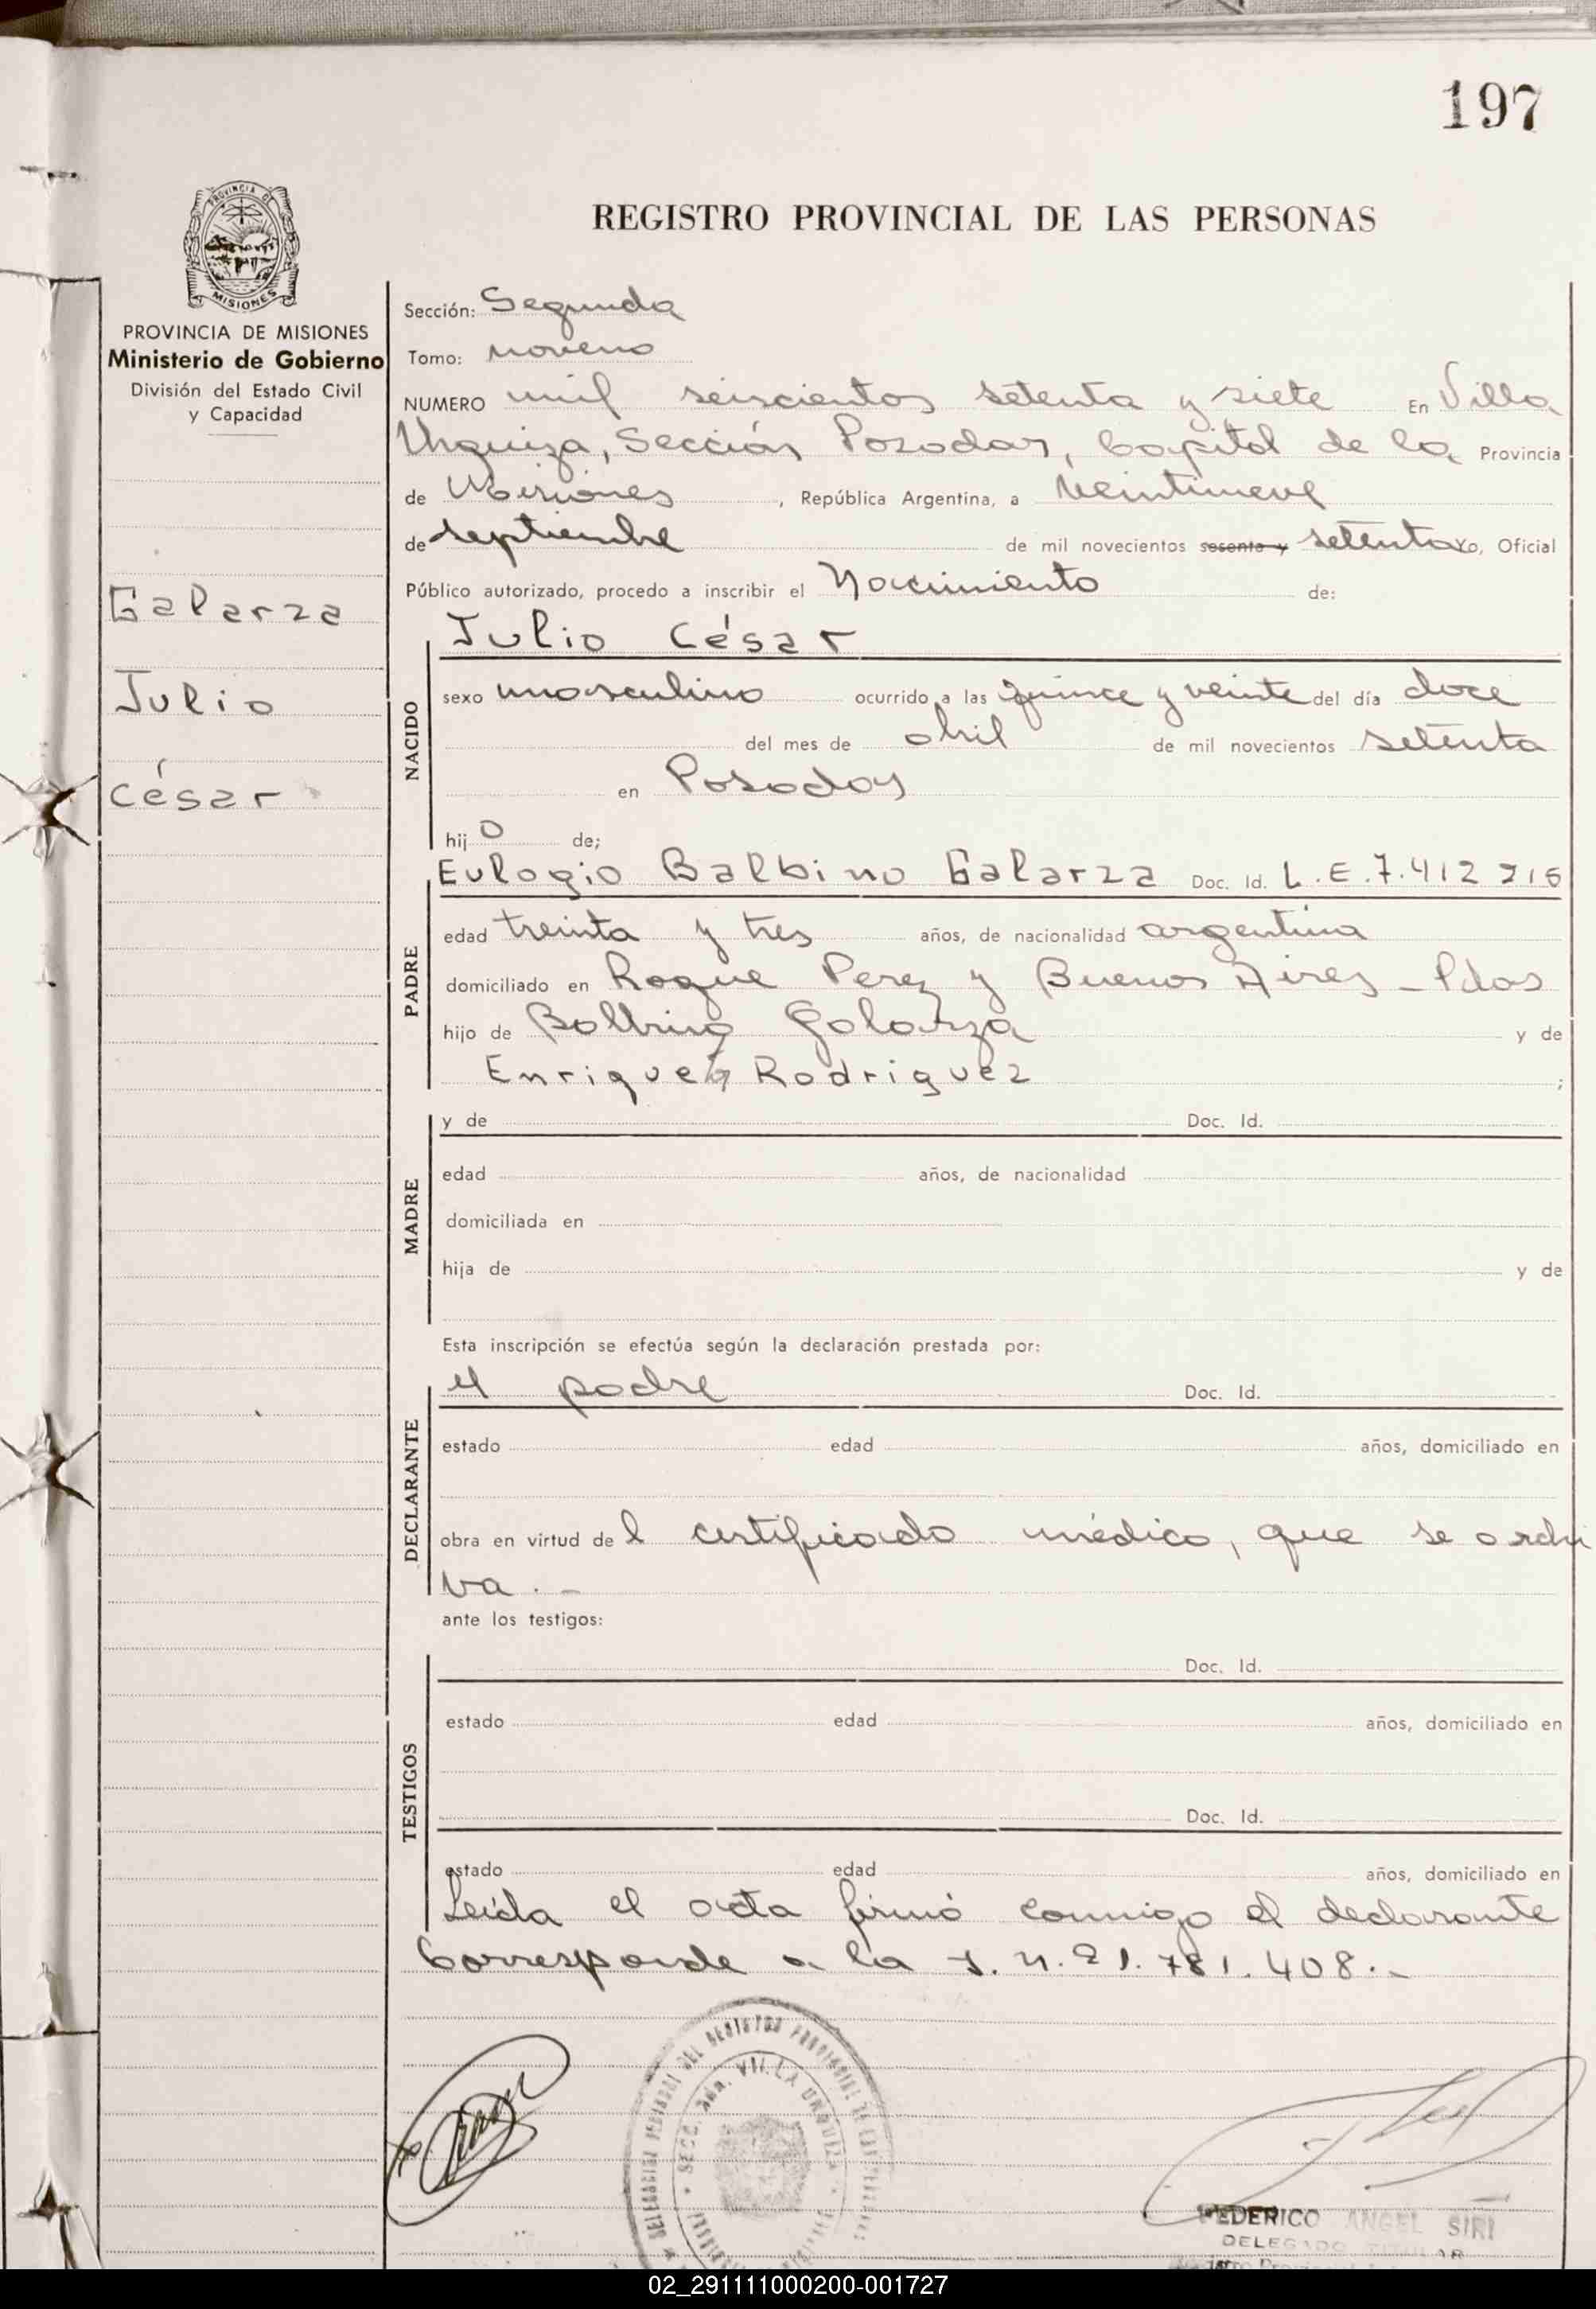 197
PROVINCIA DE
MISIONES
REGISTRO PROVINCIAL DE LAS PERSONAS
PROVINCIA DE MISIONES
Ministerio de Gobierno
División del Estado Civil
y Capacidad
Galarza
Julio
César
Sección: Segunda
Tomo: noveno
NUMERO mil seiscientos setenta y siete En Villa
Urquiza, Sección Posadas, Capital de la Provincia
de Misiones, República Argentina, a Veintinueve
de septiembre de mil novecientos sesenta y setenta Yo, Oficial
Público autorizado, procedo a inscribir el Nacimiento de:
NACIDO
Julio César
sexo masculino ocurrido a las quince y veinte del día doce
del mes de abril de mil novecientos setenta
en Posadas
hijo de;
PADRE
Eulogio Balbino Galarza Doc. Id. L.E.7.412
edad treinta y tres años, de nacionalidad argentina
domiciliado en Roque Perez y Buenos Aires - Pdas
hijo de Balbino Galarza y de
Enriqueta Rodriguez ;
MADRE
y de Doc. Id.
edad años, de nacionalidad
domiciliada en
hija de y de
Esta inscripción se efectúa según la declaración prestada por:
DECLARANTE
el padre Doc. Id.
estado edad años, domiciliado en
obra en virtud del certificado médico, que se archi
va.-
ante los testigos:
TESTIGOS
Doc. Id.
estado edad años, domiciliado en
Doc. Id.
estado edad años, domiciliado en
Leída el acta firmó conmigo el declarante
Corresponde a la 21.781.408.-
SECC. 2da. VILLA URQUIZA
FEDERICO ANGEL SIRI
DELEGADO TITULAR
02_291111000200-001727